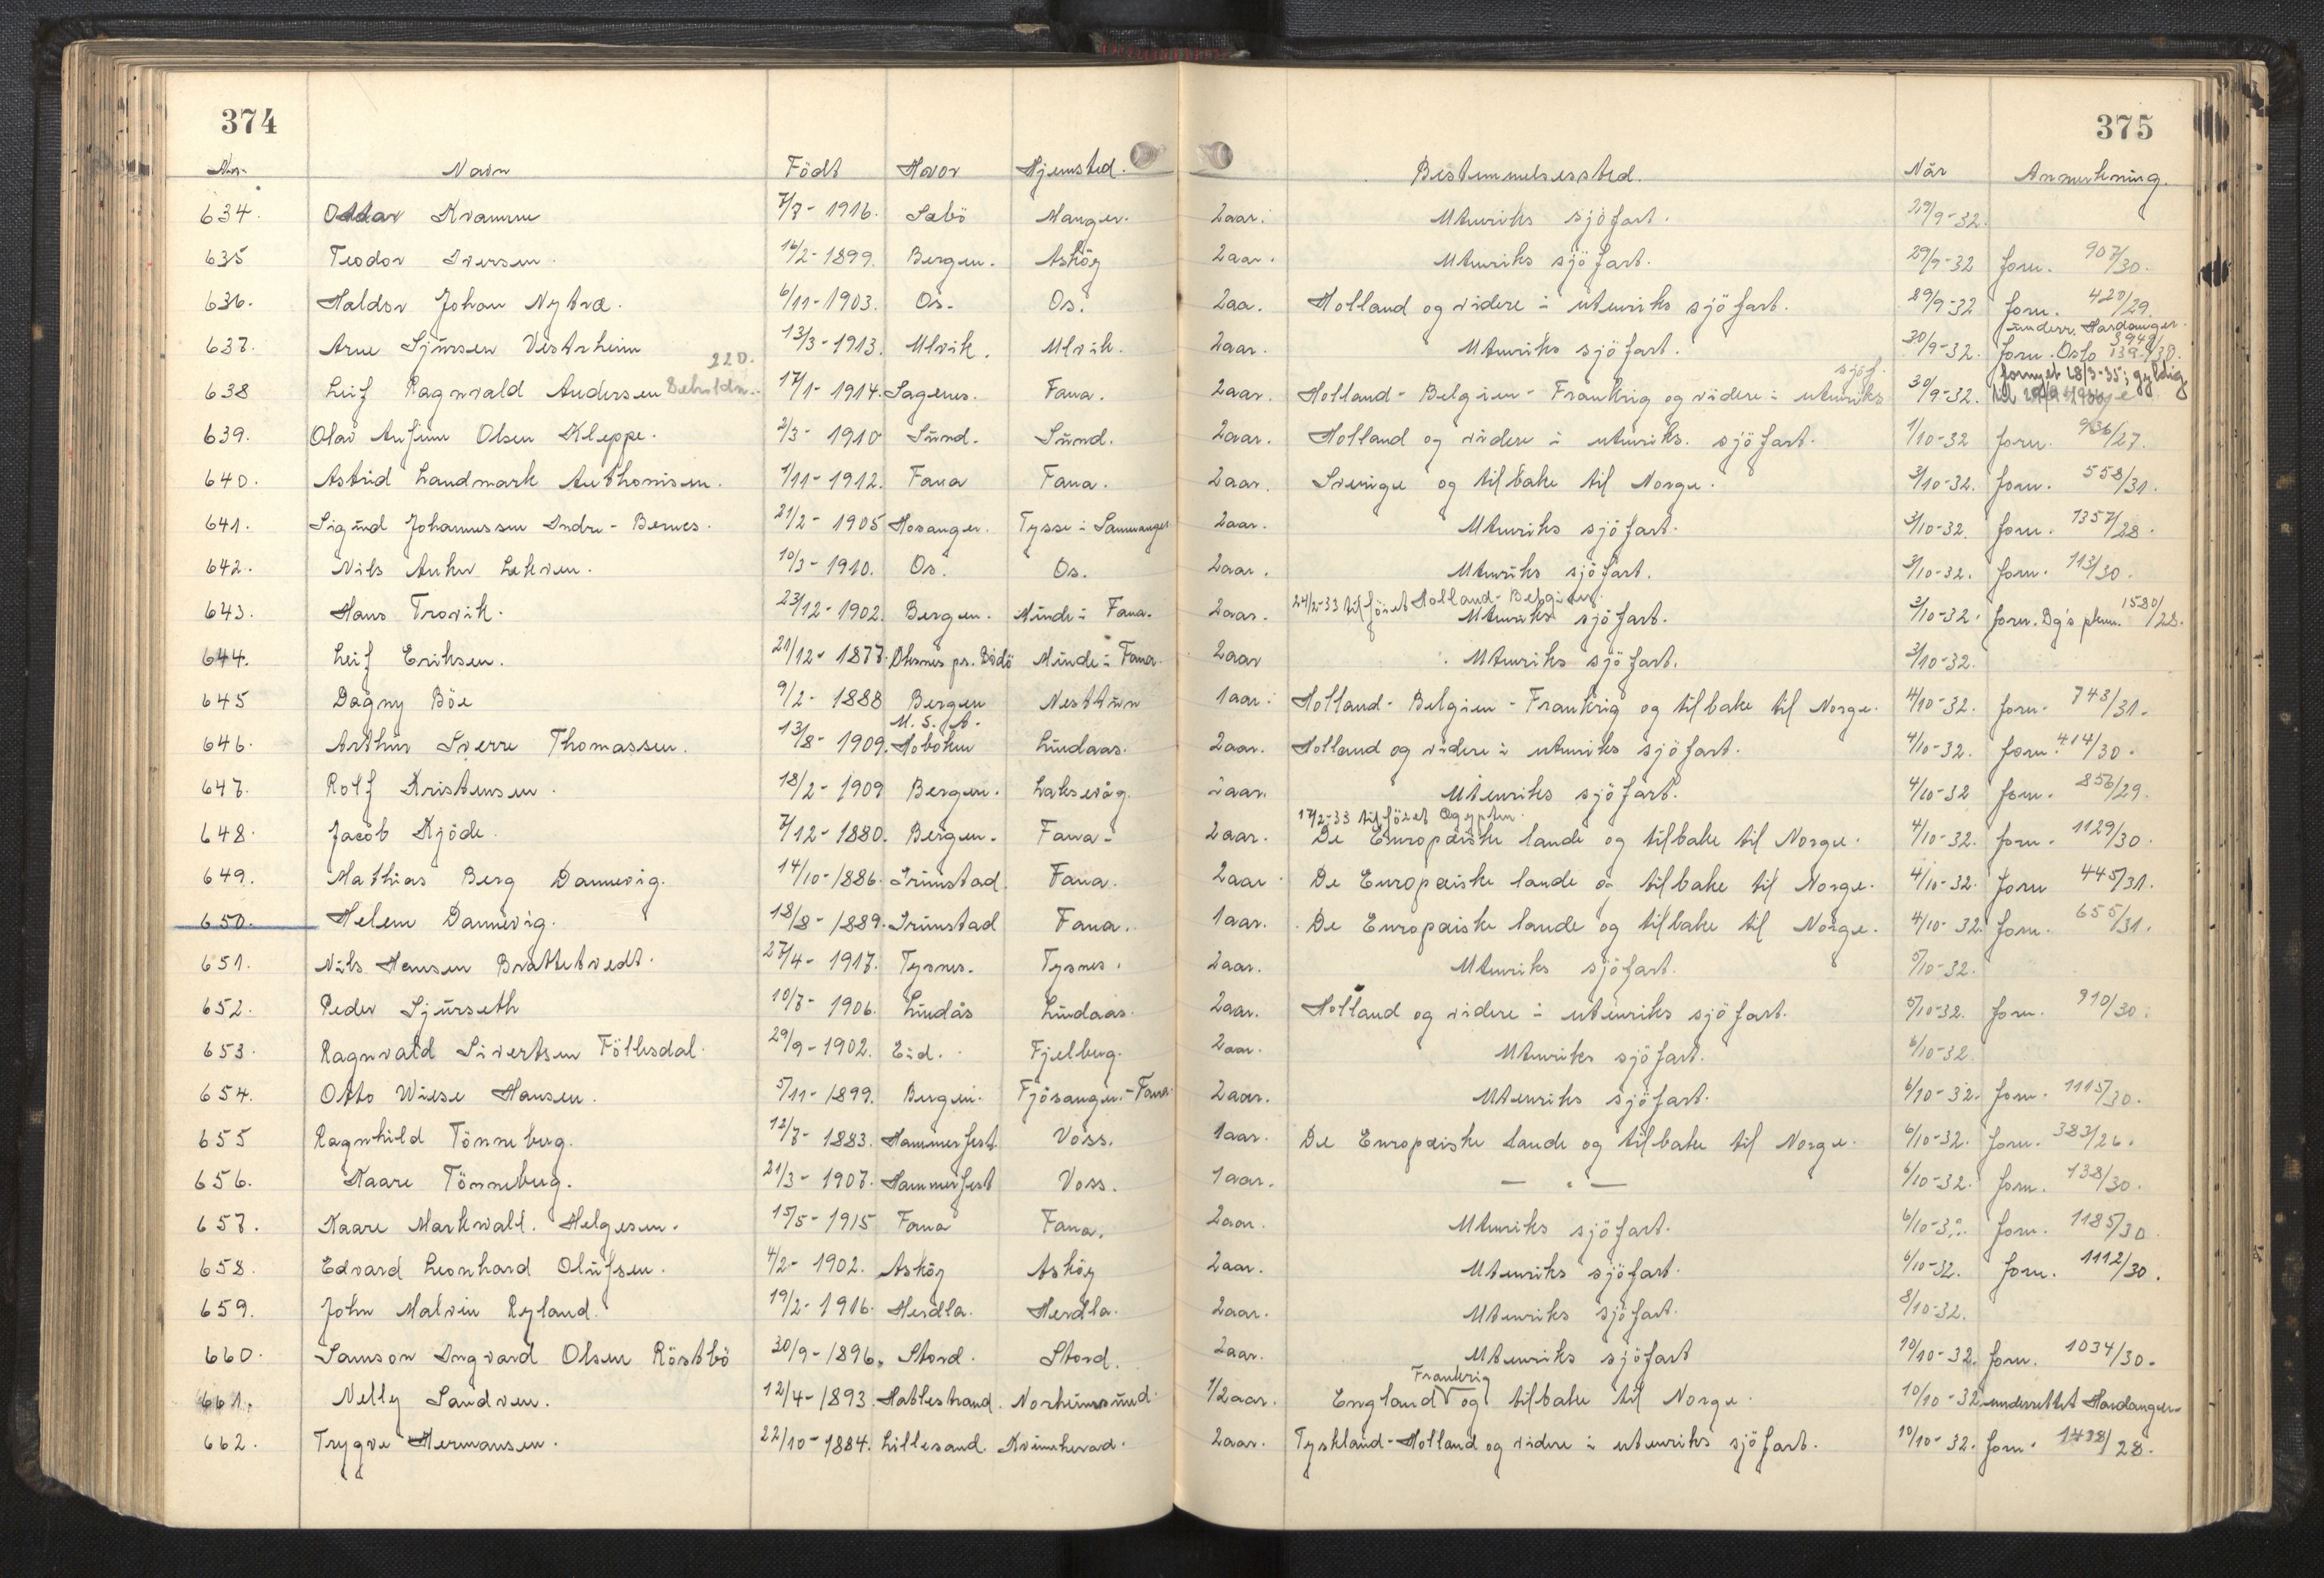 374
375
Nr. Navn Födt Hvor Hjemsted. Bestemmelsessted. När Anmerkning.
634. Ottar Kvamme 7/7-1916. Sæbö Manger. 2aar. Utenriks sjöfart. 29/9-32.
635 Teodor Iversen. 16/2-1899. Bergen. Asköy 2aar. Utenriks sjöfart. 29/9-32 forn. 907/30.
636. Haldor Johan Nytræ. 6/11-1903. Os. Os. 2aa. Holland og videre i utenriks sjöfart. 29/9-32 forn. 420/29.
underr. Hardanger.
637. Arne Sjursen Vestrheim 13/3-1913. Ulvik. Ulvik. 2aar. Utenriks sjöfart. 30/9-32. forn. Oslo
220. sjöf. fornyet 28/3-35; gyldig
638 Leif Ragnvald Andersen 17/1-1914. Fana. 2aar. Holland- Belgien- Frankrig og videre i utenriks 30/9-32. til
639. Olav Anfinn Olsen Kleppe. 2/3-1910 Sund. Sund. 2aar. Holland og videre i utenriks. sjöfart. 1/10-32 forn. 936/27.
640. Astrid Landmark Anthonisen. 1/11-1912. Fana Fana. 2aar. Sverige og tilbake til Norge. 3/10-32. forn. 558/31.
641. Sigund Johannessen Indre-Bernes. 21/2-1905 Hosanger. Tysse i Samnanger 2aar. Utenriks sjöfart. 3/10-32. forn. 1357/28.
642. Nils Anker Lekven. 10/3-1910. Os. Os. 2aar. Utenriks sjöfart. 3/10-32. forn. 113/30.
24/2-33 tilföiet Holland-Belgien.
643. Hans Trovik. 23/12-1902. Bergen. Minde i Fana. 2aar. Utenriks sjöfart. 3/10-32. forn. Bg's pkam. 1580/28.
644. Leif Eriksen. 21/12-1877. pr. Bodö Minde i Fana. 2aar Utenriks sjöfart. 3/10-32.
645 Dagny Böe 9/2-1888 Bergen Nesttun 1aar. Holland- Belgien- Frankrig og tilbake til Norge. 4/10-32. forn. 743/31.
U.S.A.
646. Arthur Sverre Thomassen. 13/8-1909. Hoboken Lindaas. 2aar. Holland og videre i utenriks sjöfart. 4/10-32. forn. 414/30.
647. Rolf Kristensen. 18/2-1909 Bergen. Laksevåg. 2aar. Utenriks sjöfart. 4/10-32 forn. 856/29.
17/2-33 tilföiet Ægypten.
648. Jacob Kjöde. 7/12-1880. Bergen. Fana. 2aar. De Europæiske lande og tilbake til Norge. 4/10-32. forn. 1129/30.
649. Mathias Berg Dannevig. 14/10-1886. Grimstad. Fana. 2aar. De Europæiske lande og tilbake til Norge. 4/10-32. forn 445/31.
650. Helene Dannevig. 18/8-1889. Grimstad Fana. 1aar. De Europæiske lande og tilbake til Norge. 4/10-32. forn. 655/31.
651. Nils Hansen Brattetvedt. 27/4-1917. Tysnes. Tysnes. 2aar. Utenriks sjöfart. 5/10-32.
652. Peder Sjurseth 10/7-1906. Lindås Lindaas. 2aar. Holland og videre i utenriks sjöfart. 5/10-32. forn. 910/30.
653. Ragnvald Sivertsen Föllesdal. 29/9-1902. Eid. Fjelberg. 2aar. Utenriks sjöfart. 6/10-32.
654. Otto Wiese Hansen. 5/11-1899. Bergen. Fjösanger.-Fana. 2aar. Utenriks sjöfart. 6/10-32. forn. 1115/30.
655 Ragnhild Tönneberg. 12/7-1883. Hammerfest. Voss. 1aar. De Europæiske lande og tilbake til Norge. 6/10-32. forn. 383/26.
656. Kaare Tönneberg. 21/3-1907. Hammerfest Voss. 1aar. — " — 6/10-32. forn. 138/30.
657. Kaare Markvald. Helgesen. 15/5-1915 Fana Fana. 2aar. Utenriks sjöfart. 6/10-32. forn. 1185/30
658. Edvard Leonhard Olufsen. 4/2-1902. Asköy Asköy 2aar. Utenriks sjöfart. 6/10-32. forn. 1112/30.
659. John Malvin Ryland. 19/2-1916. Herdla. Herdla. 2aar. Utenriks sjöfart. 8/10-32.
660. Samson Ingvard Olsen Röstbö 30/9-1896. Stord. Stord. 2aar. Utenriks sjöfart 10/10-32. forn. 1034/30.
Frankrig
661. Nelly Sandven. 12/4-1893. Hatlestrand. Norheimsund. 1/2aar. England og tilbake til Norge. 10/10-32. underrettet Hardanger.
662. Trygve Hermansen. 22/10-1884. Lillesand. Kvinnherad. 2aar. Tyskland-Holland og videre i utenriks sjöfart. 10/10-32. forn. 1438/28.